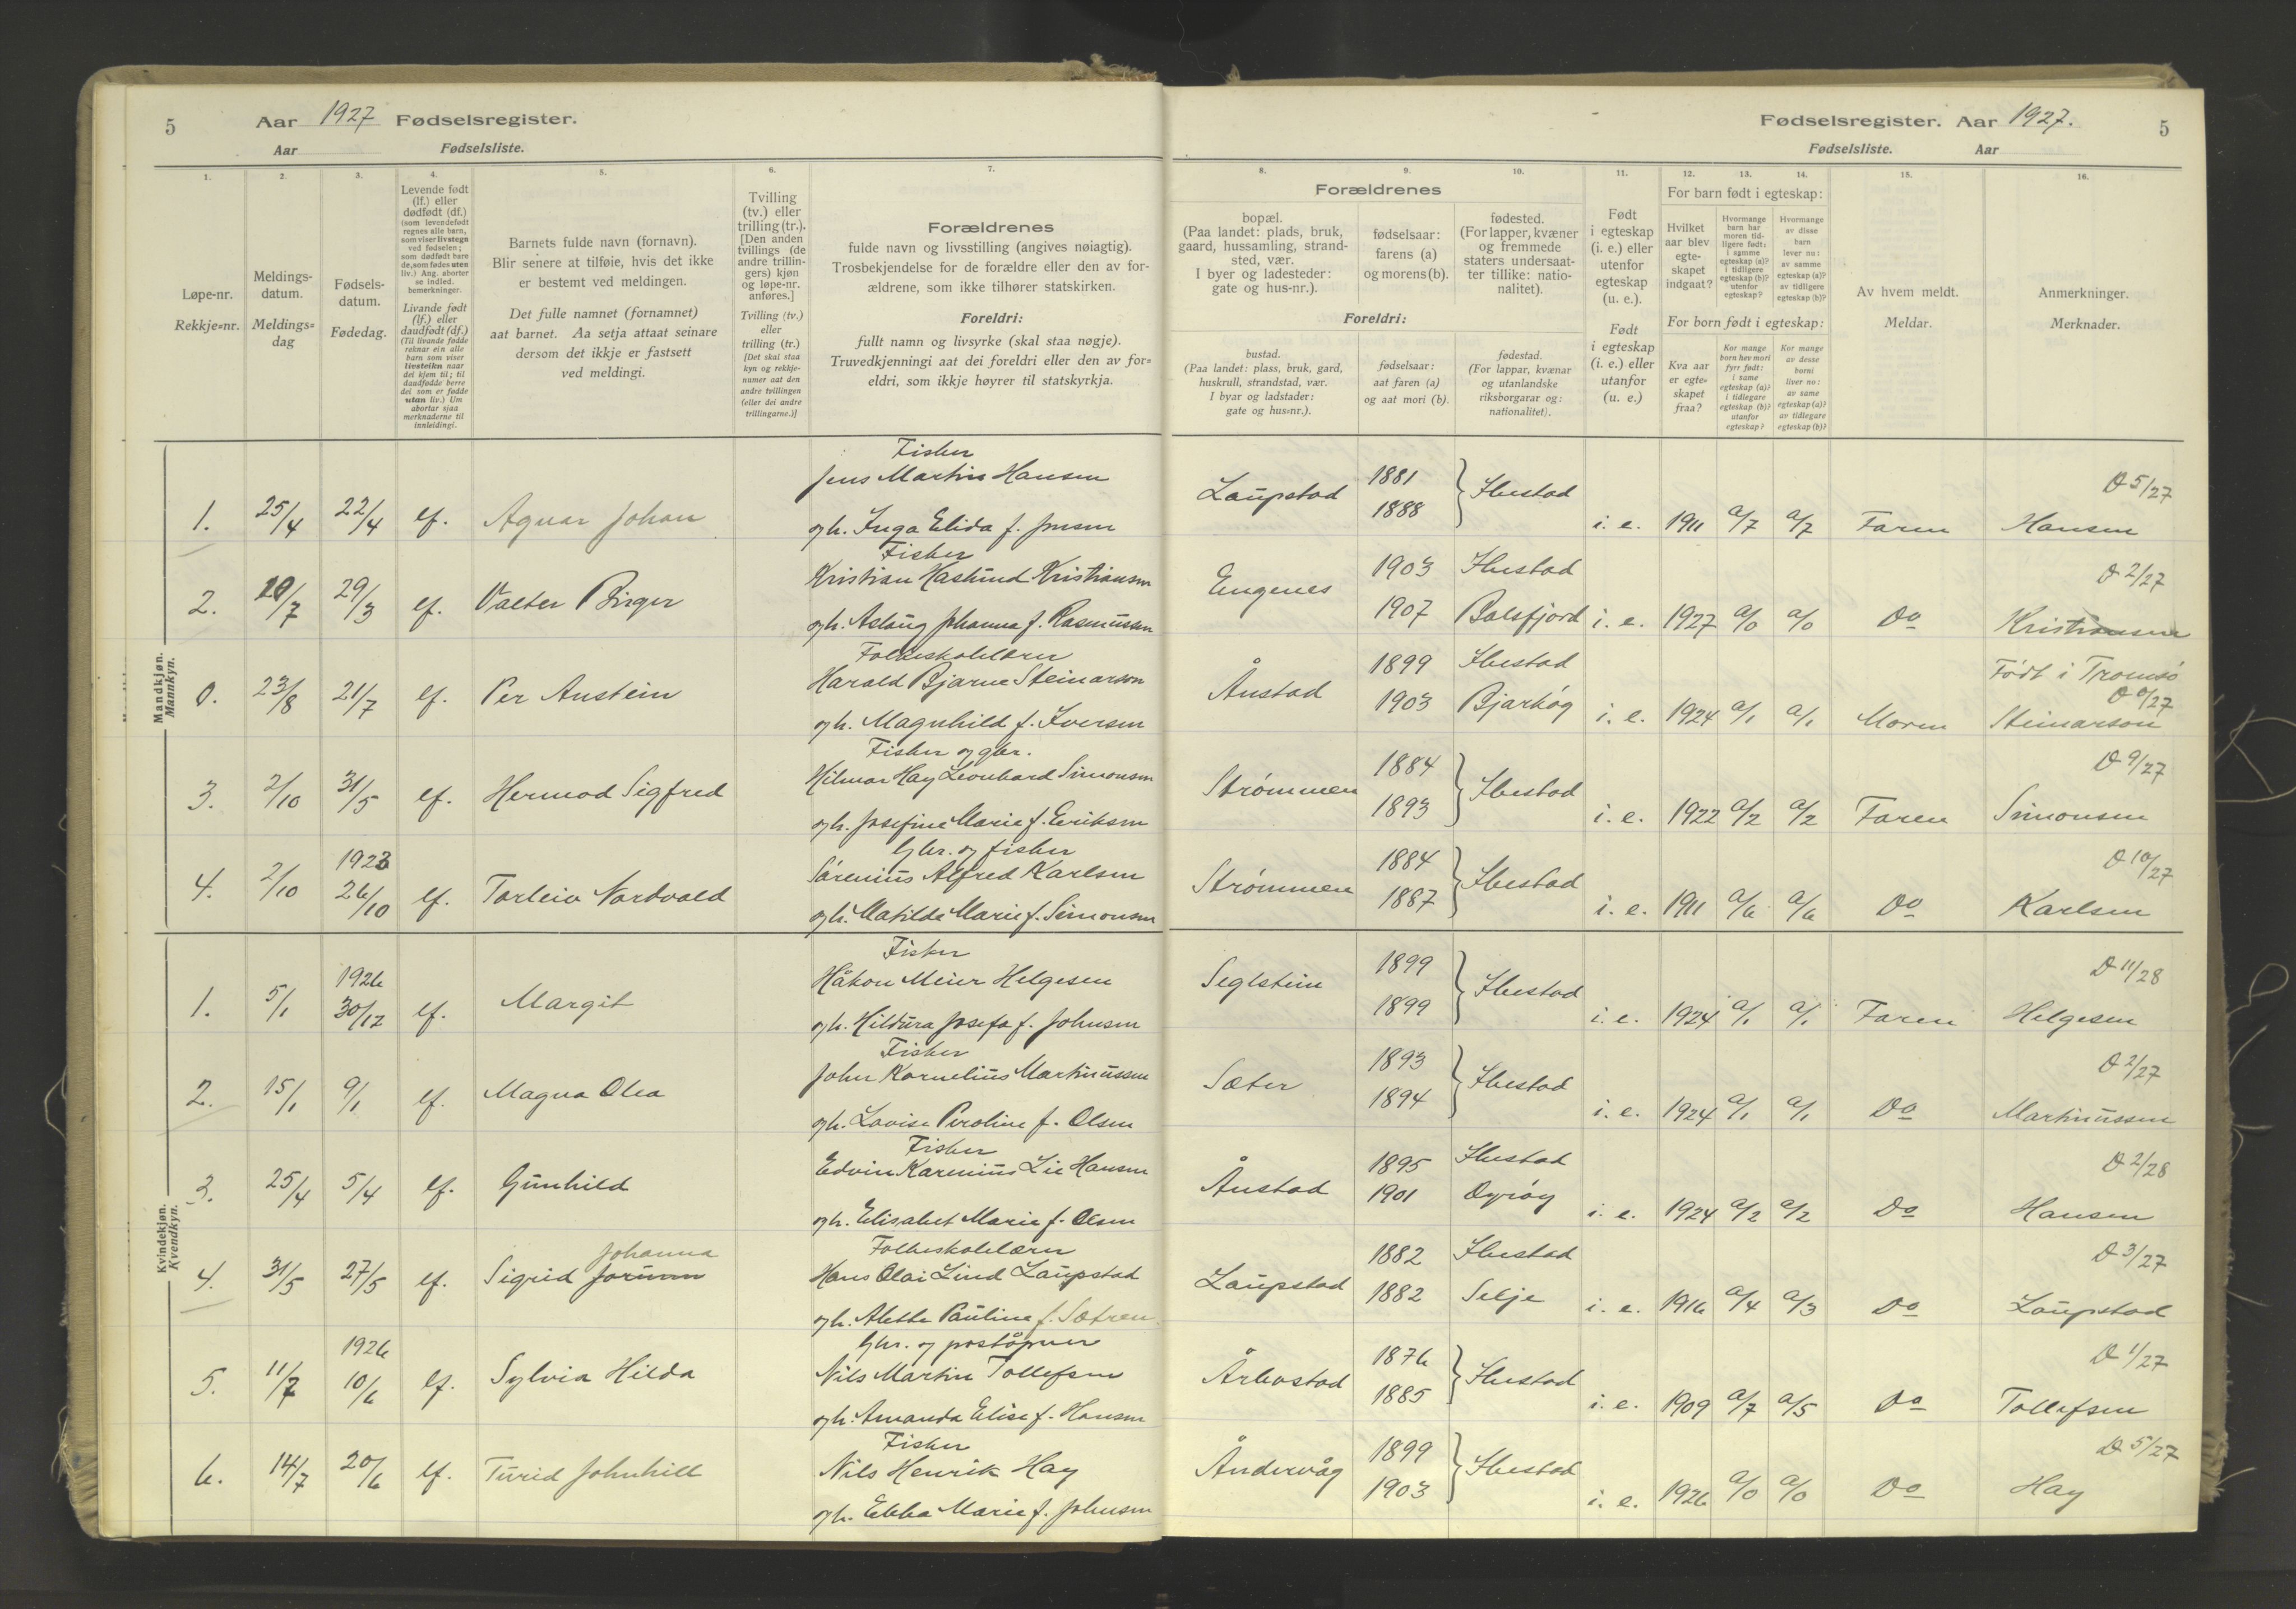 5 Aar 1927 Fødselsregister.
Aar Fødselsliste.
Fødselsregister. Aar 1927. 5
Fødselsliste. Aar
1. 2. 3. 4. 5. 6. 7. 8. 9. 10. 11. 12. 13. 14. 15. 16.
Løpe-nr.
Rekkje=nr.
Meldings-
datum.
Meldings=
dag
Fødsels-
datum.
Fødedag.
Levende født
(lf.) eller
dødfødt (df.)
(som levendefødt
regnes alle barn,
som viser livstegn
ved fødselen;
som dødfødt bare
de, som fødes uten
liv.) Ang. aborter
se indled.
bemerkninger.
Livande født
(lf.) eller
daudfødt (df.)
(Til livande fødde
reknar ein alle
barn som viser
livsteikn naar
dei kjem til; til
daudfødde berre
dei som er fødde
utan liv.) Um
abortar sjaa
merknaderne til
innleidingi.
Barnets fulde navn (fornavn).
Blir senere at tilføie, hvis det ikke
er bestemt ved meldingen.
Det fulle namnet (fornamnet)
aat barnet. Aa setja attaat seinare
dersom det ikkje er fastsett
ved meldingi.
Tvilling
(tv.) eller
trilling (tr.).
[Den anden
tvillings (de
andre trillin-
gers) kjøn
og løpe-nr.
anføres.]
Tvilling (tv.)
eller
trilling (tr.)
[Det skal staa
kyn og rekkje-
numer aat den
andre tvillingen
(eller dei andre
trillingarne.)]
Forældrenes
fulde navn og livsstilling (angives nøiagtig).
Trosbekjendelse for de forældre eller den av for-
ældrene, som ikke tilhører statskirken.
Foreldri:
fullt namn og livsyrke (skal staa nøgje).
Truvedkjenningi aat dei foreldri eller den av for=
eldri, som ikkje høyrer til statskyrkja.
Forældrenes
bopæl.
(Paa landet: plads, bruk,
gaard, hussamling, strand-
sted, vær.
I byer og ladesteder:
gate og hus-nr.).
fødselsaar:
farens (a)
og morens (b).
fødested.
(For lapper, kvæner
og fremmede
staters undersaat-
ter tillike: natio-
nalitet).
Foreldri:
bustad.
(Paa landet: plass, bruk, gard,
huskrull, strandstad, vær.
I byar og ladstader:
gate og hus=nr.).
fødselsaar:
aat faren (a)
og aat mori (b).
fødestad.
(For lappar, kvænar
og utanlandske
riksborgarar og:
nationalitet).
Født
i egteskap
(i. e.) eller
utenfor
egteskap
(u. e.).
Født
i egteskap
(i. e.) eller
utanfor
(u. e.)
For barn født i egteskap:
Hvilket
aar blev
egte-
skapet
indgaat?
Hvormange
barn har
moren tid-
ligere født:
i samme
egteskap (a)?
i tidligere
egteskap (b)?
utenfor
egteskap?
Hvormange
av disse
barn
lever nu:
av samme
egteskap (a)?
av tidligere
egteskap (b)?
For born født i egteskap:
Kva aar
er egte=
skapet
fraa?
Kor mange
born hev mori
fyrr født:
i same
egteskap (a)?
i tidlegare
egteskap (b)?
utanfor
egteskap?
Kor mange
av desse
borni
liver no:
av same
egteskap (a)?
av tidlegare
egteskap (b)?
Av hvem meldt.
Meldar.
Anmerkninger.
Merknader.
Mandkjøn.
Mannkyn.
Fisker
Jens Martin Hansen Laupstad 1881 Ibestad D 5/27
1. 25/4 22/4 lf. Agnar Johan ogh. Inga Elida f. Jensen 1888 i. e. 1911 a/7 a/7 Faren Hansen
Fisker
Kristian Haslund Kristiansen Engenes 1903 Ibestad D 2/27
2. 10/7 29/3 lf. Valter Birger ogh. Aslaug Johanna f. Rasmussen 1907 Balsfjord i. e. 1927 a/0 a/0 Do Kristiansen
Folkeskolelærer
Harald Bjarne Steinarson Ånstad 1899 Ibestad Født i Tromsø D 6/27
0. 23/8 21/7 lf. Per Austein ogh. Magnhild f. Iversen 1903 Bjarkøy i. e. 1924 a/1 a/1 Moren Steinarson
Fisker og gbr.
Hilmar Hay Leonhard Simonsen Strømmen 1884 Ibestad D 9/27
3. 2/10 31/5 lf. Hermod Sigfred ogh. Josefine Marie f. Eriksen 1893 i. e. 1922 a/2 a/2 Faren Simonsen
1923 Gbr. og fisker
Sørenius Alfred Karlsen Strømmen 1884 Ibestad D 10/27
4. 2/10 26/10 lf. Torleiv Nordvald ogh. Matilde Marie f. Simonsen 1887 i. e. 1911 a/6 a/6 Do Karlsen
Kvindekjøn.
Kvendkyn.
Fisker
1926 Håkon Meier Helgesen Seglstein 1899 Ibestad D 11/28
1. 5/1 30/12 lf. Margit ogh. Hildura Josefa f. Johnsen 1899 i. e. 1924 a/1 a/1 Faren Helgesen
Fisker
John Kornelius Martinussen Sæter 1893 Ibestad D 2/27
2. 15/1 9/1 lf. Magna Olea ogh. Lovise Peroline f. Olsen 1894 i. e. 1924 a/1 a/1 Do Martinussen
Fisker
Edvin Karenius Lie Hansen Ånstad 1895 Ibestad D 2/28
3. 25/4 5/4 lf. Gunhild ogh. Elisabet Marie f. Olsen 1901 Dyrøy i. e. 1924 a/2 a/2 Do Hansen
Johanna Folkeskolelærer
Hans Olai Lind Laupstad Laupstad 1882 Ibestad D 3/27
4. 31/5 27/5 lf. Sigrid ogh. Alette Pauline f. Sætren 1882 Selje i. e. 1916 a/4 a/3 Do Laupstad
1926 Gbr. og poståpner
Nils Martin Tollefsen Årbostad 1876 Ibestad D 1/27
5. 11/7 10/6 lf. Sylvia Hilda ogh. Amanda Elise f. Hansen 1885 i. e. 1909 a/7 a/5 Do Tollefsen
Fisker
Nils Henrik Hay Åndervåg 1899 Ibestad D 5/27
6. 14/7 20/6 lf. Turid Johnhill ogh. Ebba Marie f. Johnsen 1903 i. e. 1926 a/0 a/0 Do Hay